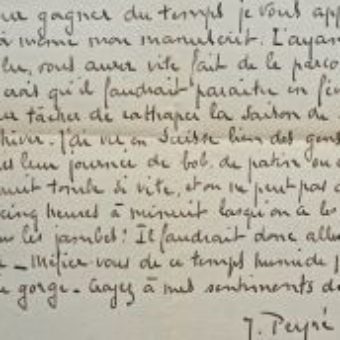 ur gagner du temps je vous app
à même mon manuscrit. L'ayan
lu, vous aurez vite fait de le parco
crois qu'il faudrait paraître en fév
ur tâcher de rattraper la saison de
hiver. J'ai vu en Suisse bien des gens
es leur journée de bob, de patin ou
nuit tombe si vite, et on ne peut pas
cinq heures à minuit lorsqu'on a les
les jambes! Il faudrait donc alle
e - Méfiez-vous de ce temps humide
e gorge - Croyez à mes sentiments d
J. Peyré